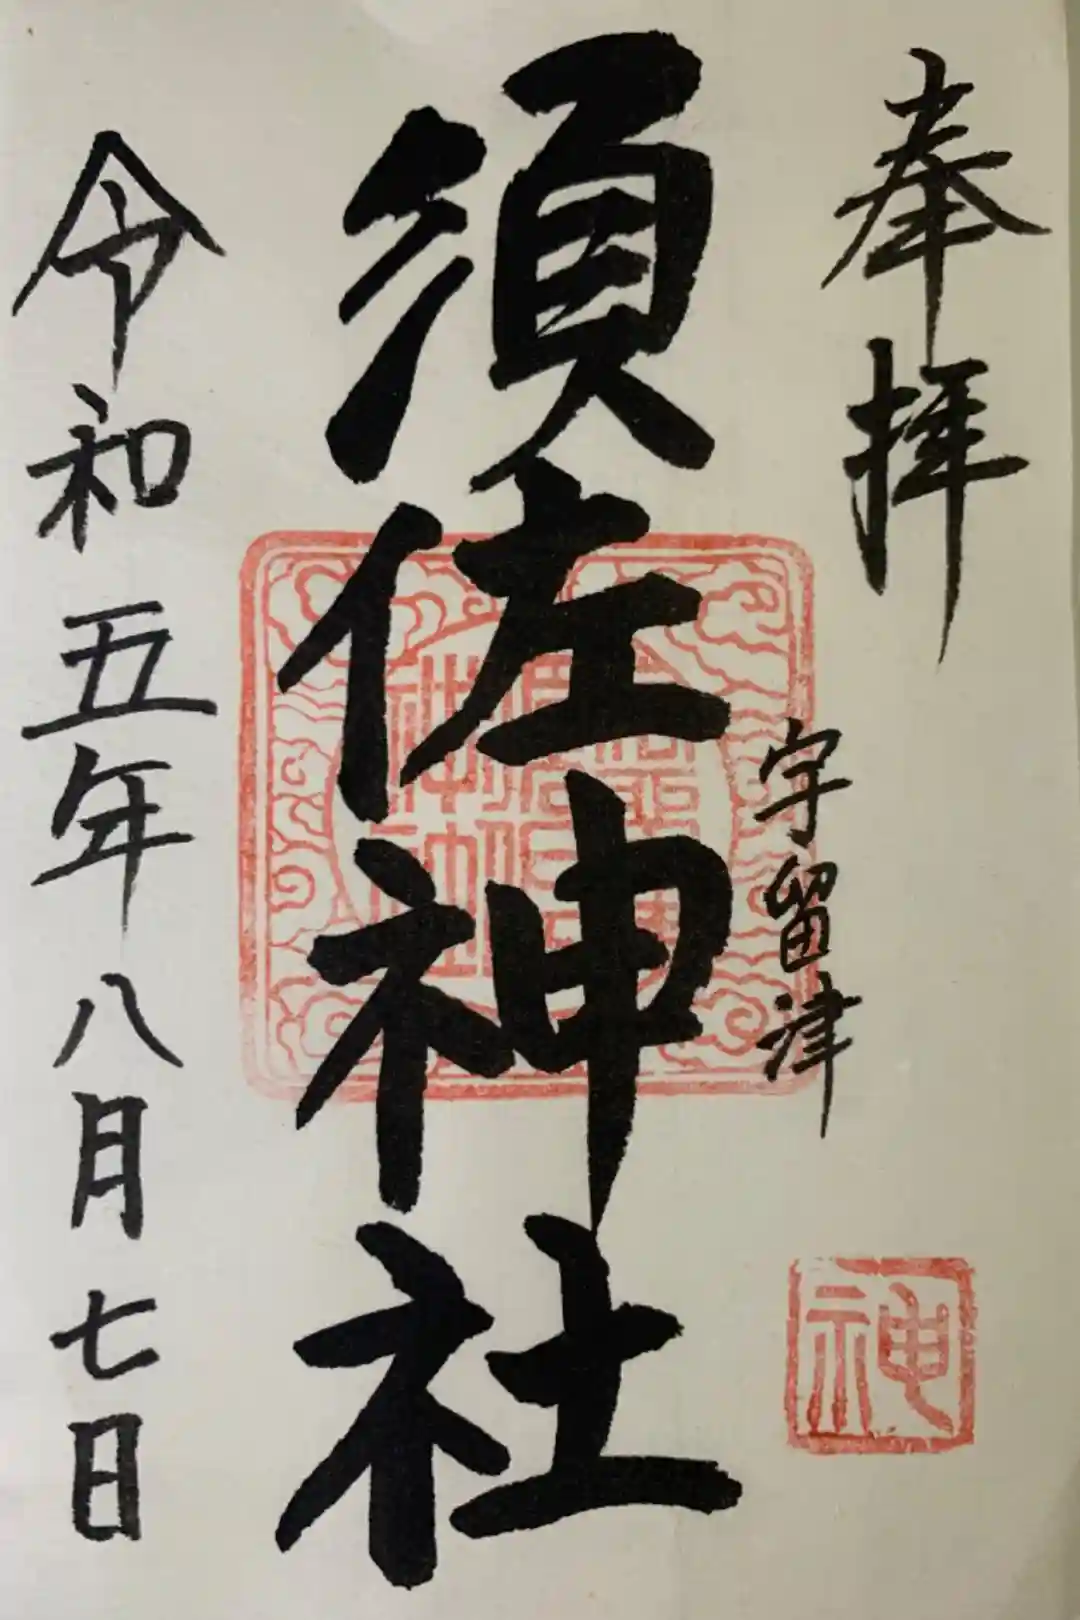 奉拝
宇留津
須佐神社
令和五年八月七日
神